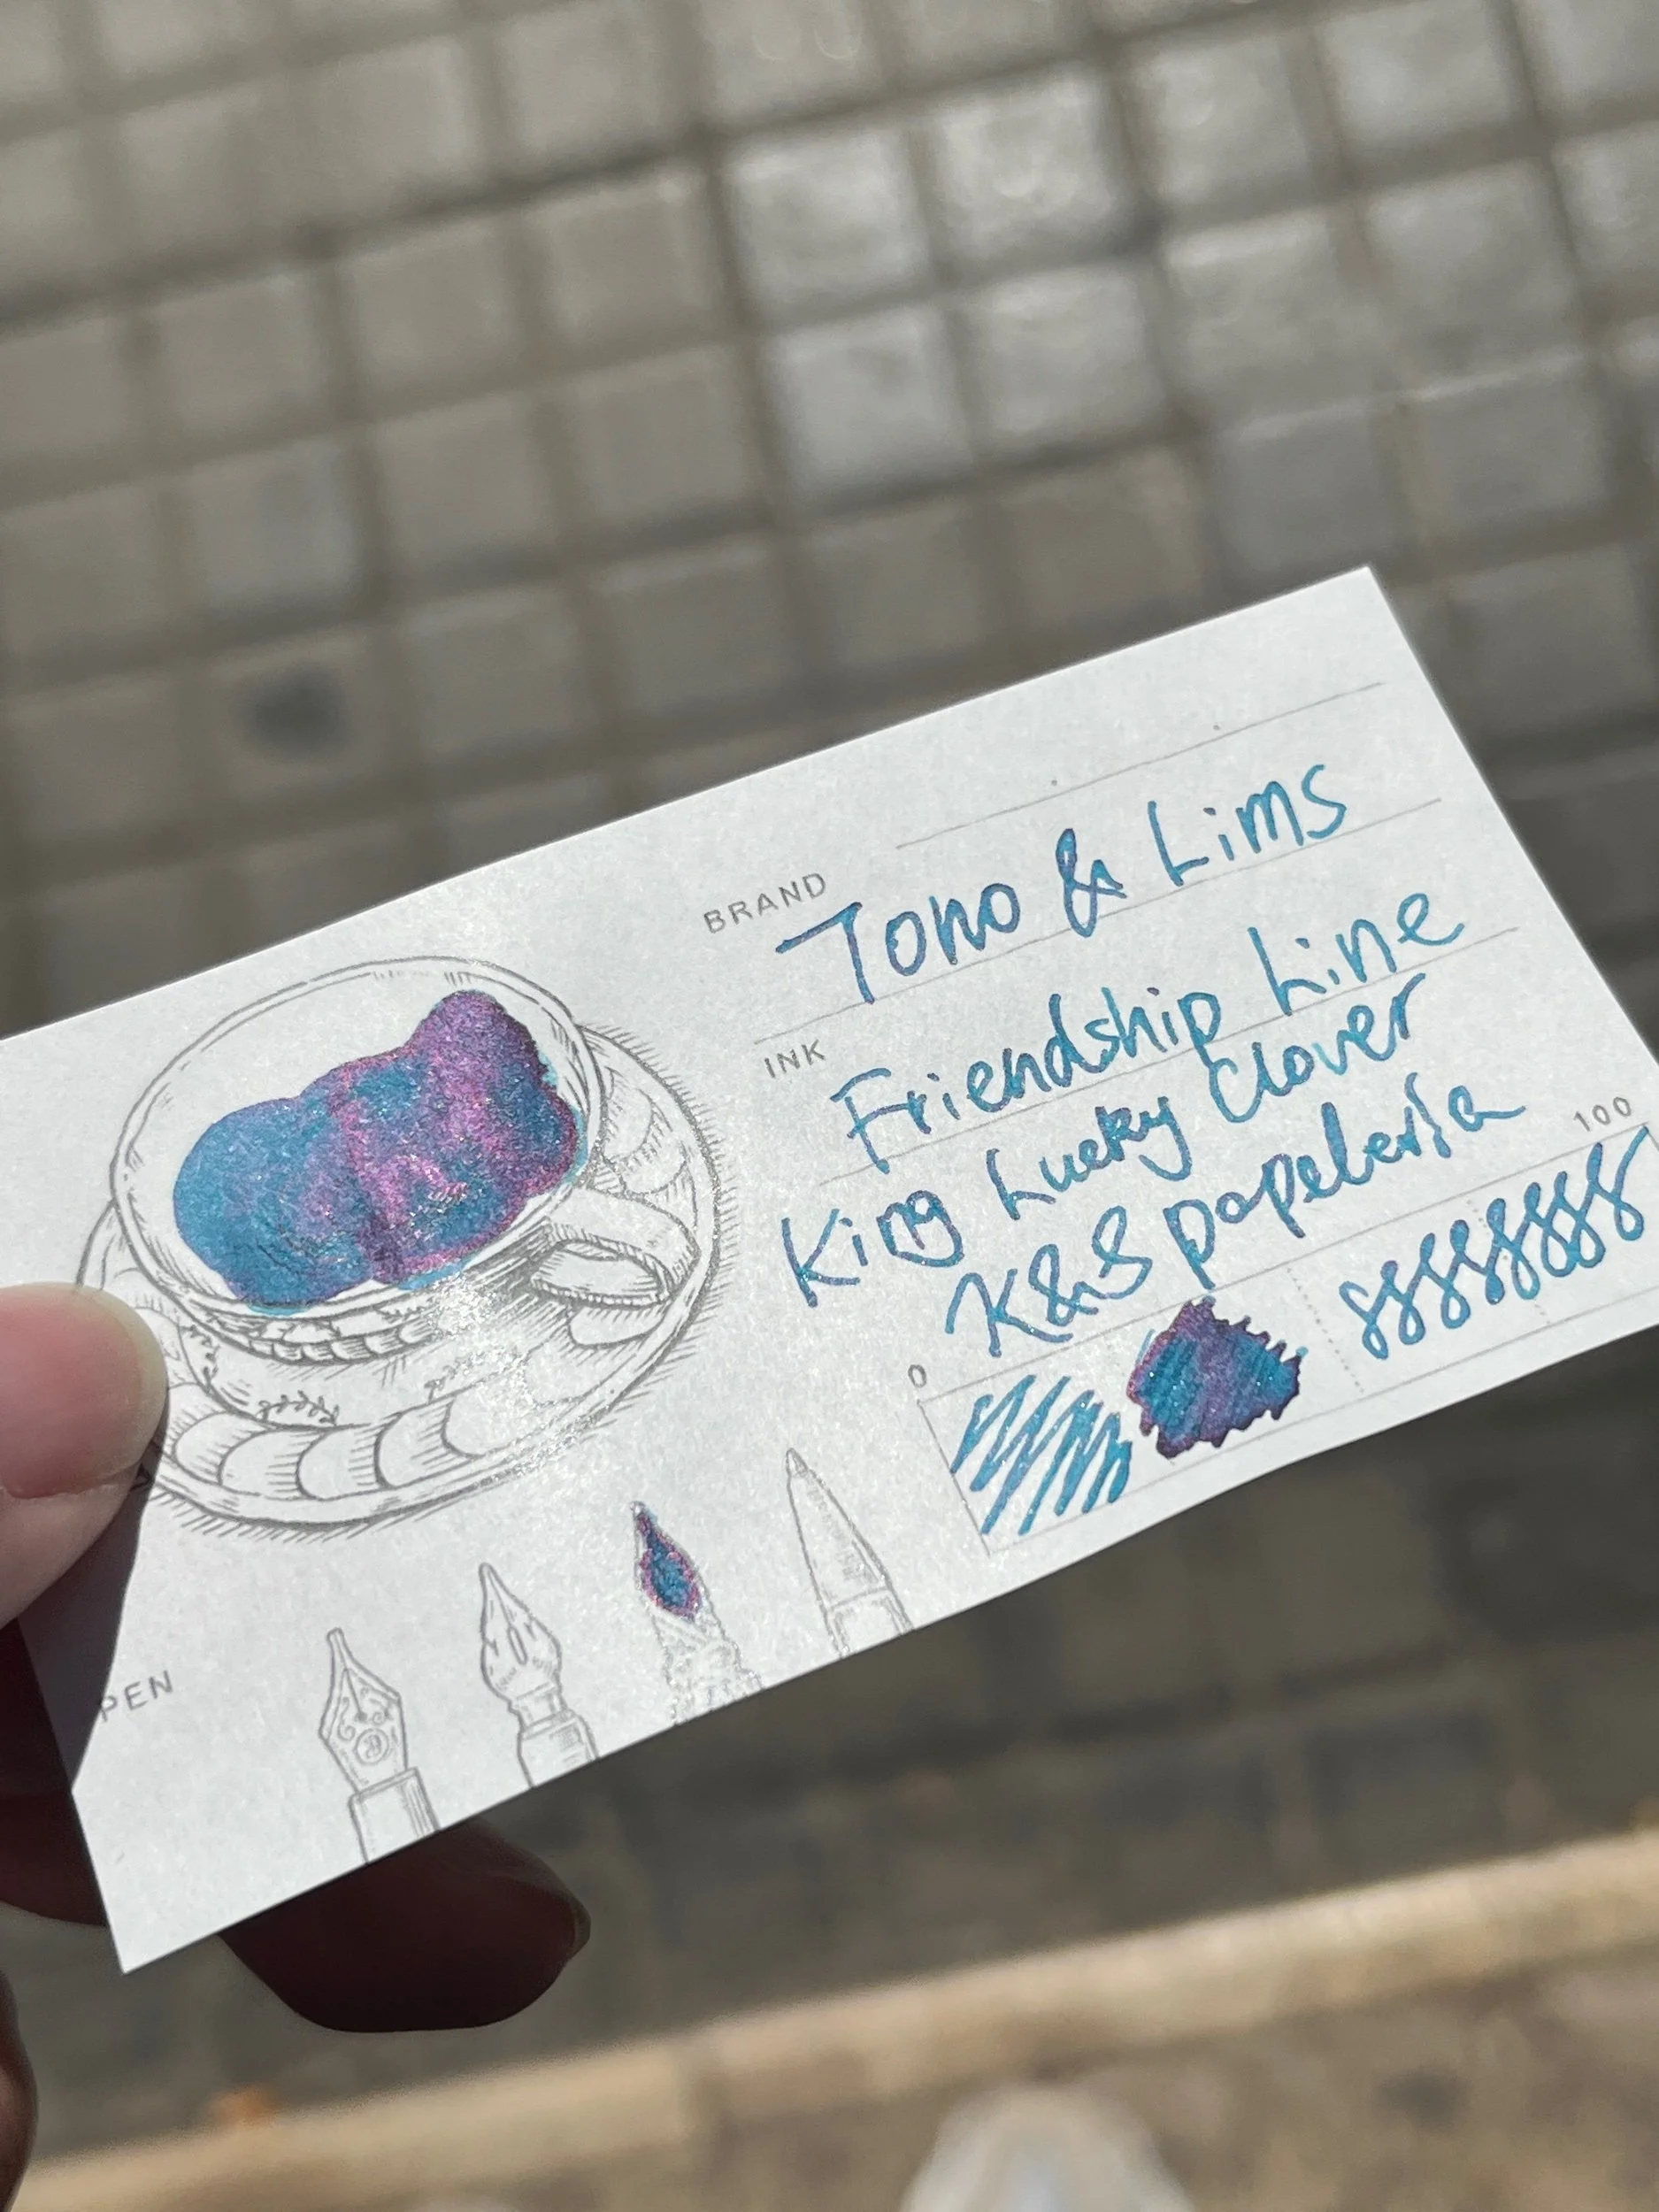 BRAND Tono & Lims
INK Friendship Line
King Lucky Clover
K&S papelería
0 100
PEN